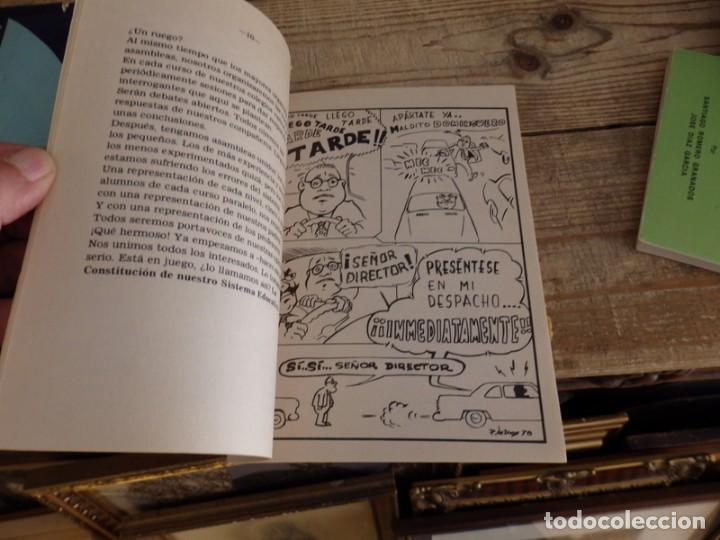 —10—
¿Un ruego?
Al mismo tiempo que los mayores
asambleas, nosotros organizamos
En cada curso de nuestros colegios
periódicamente sesiones para
interrogantes que aquí se plantean
Serán debates abiertos. Todos
respuestas de nuestros
unas conclusiones.
Después, tengamos asambleas
los pequeños. Los de más experiencia
los menos experimentados quizá
estamos sufriendo los errores del
Una representación de cada nivel
alumnos de cada curso paralelo,
con una representación de nuestros
Y con una representación de los
Todos seremos portavoces de
¡Qué hermoso! Ya empezamos a
Nos unimos todos los interesados.
serio. Está en juego, ¿lo llamamos así?
Constitución de nuestro Sistema
TARDE LLEGO
LLEGO TARDE TARDE
TARDE
TARDE!!
APÁRTATE YA..
MALDITO DOMINGUERO
MEC MEC
MEC
¡SEÑOR
DIRECTOR!
PRESÉNTESE
EN MI
DESPACHO....
¡¡INMEDIATAMENTE!!
SÍ..SÍ... SEÑOR DIRECTOR
78
por
SANTIAGO ROMERO GRANADOS
JOSE DIAZ GARCIA
todocoleccion
todocoleccion.net